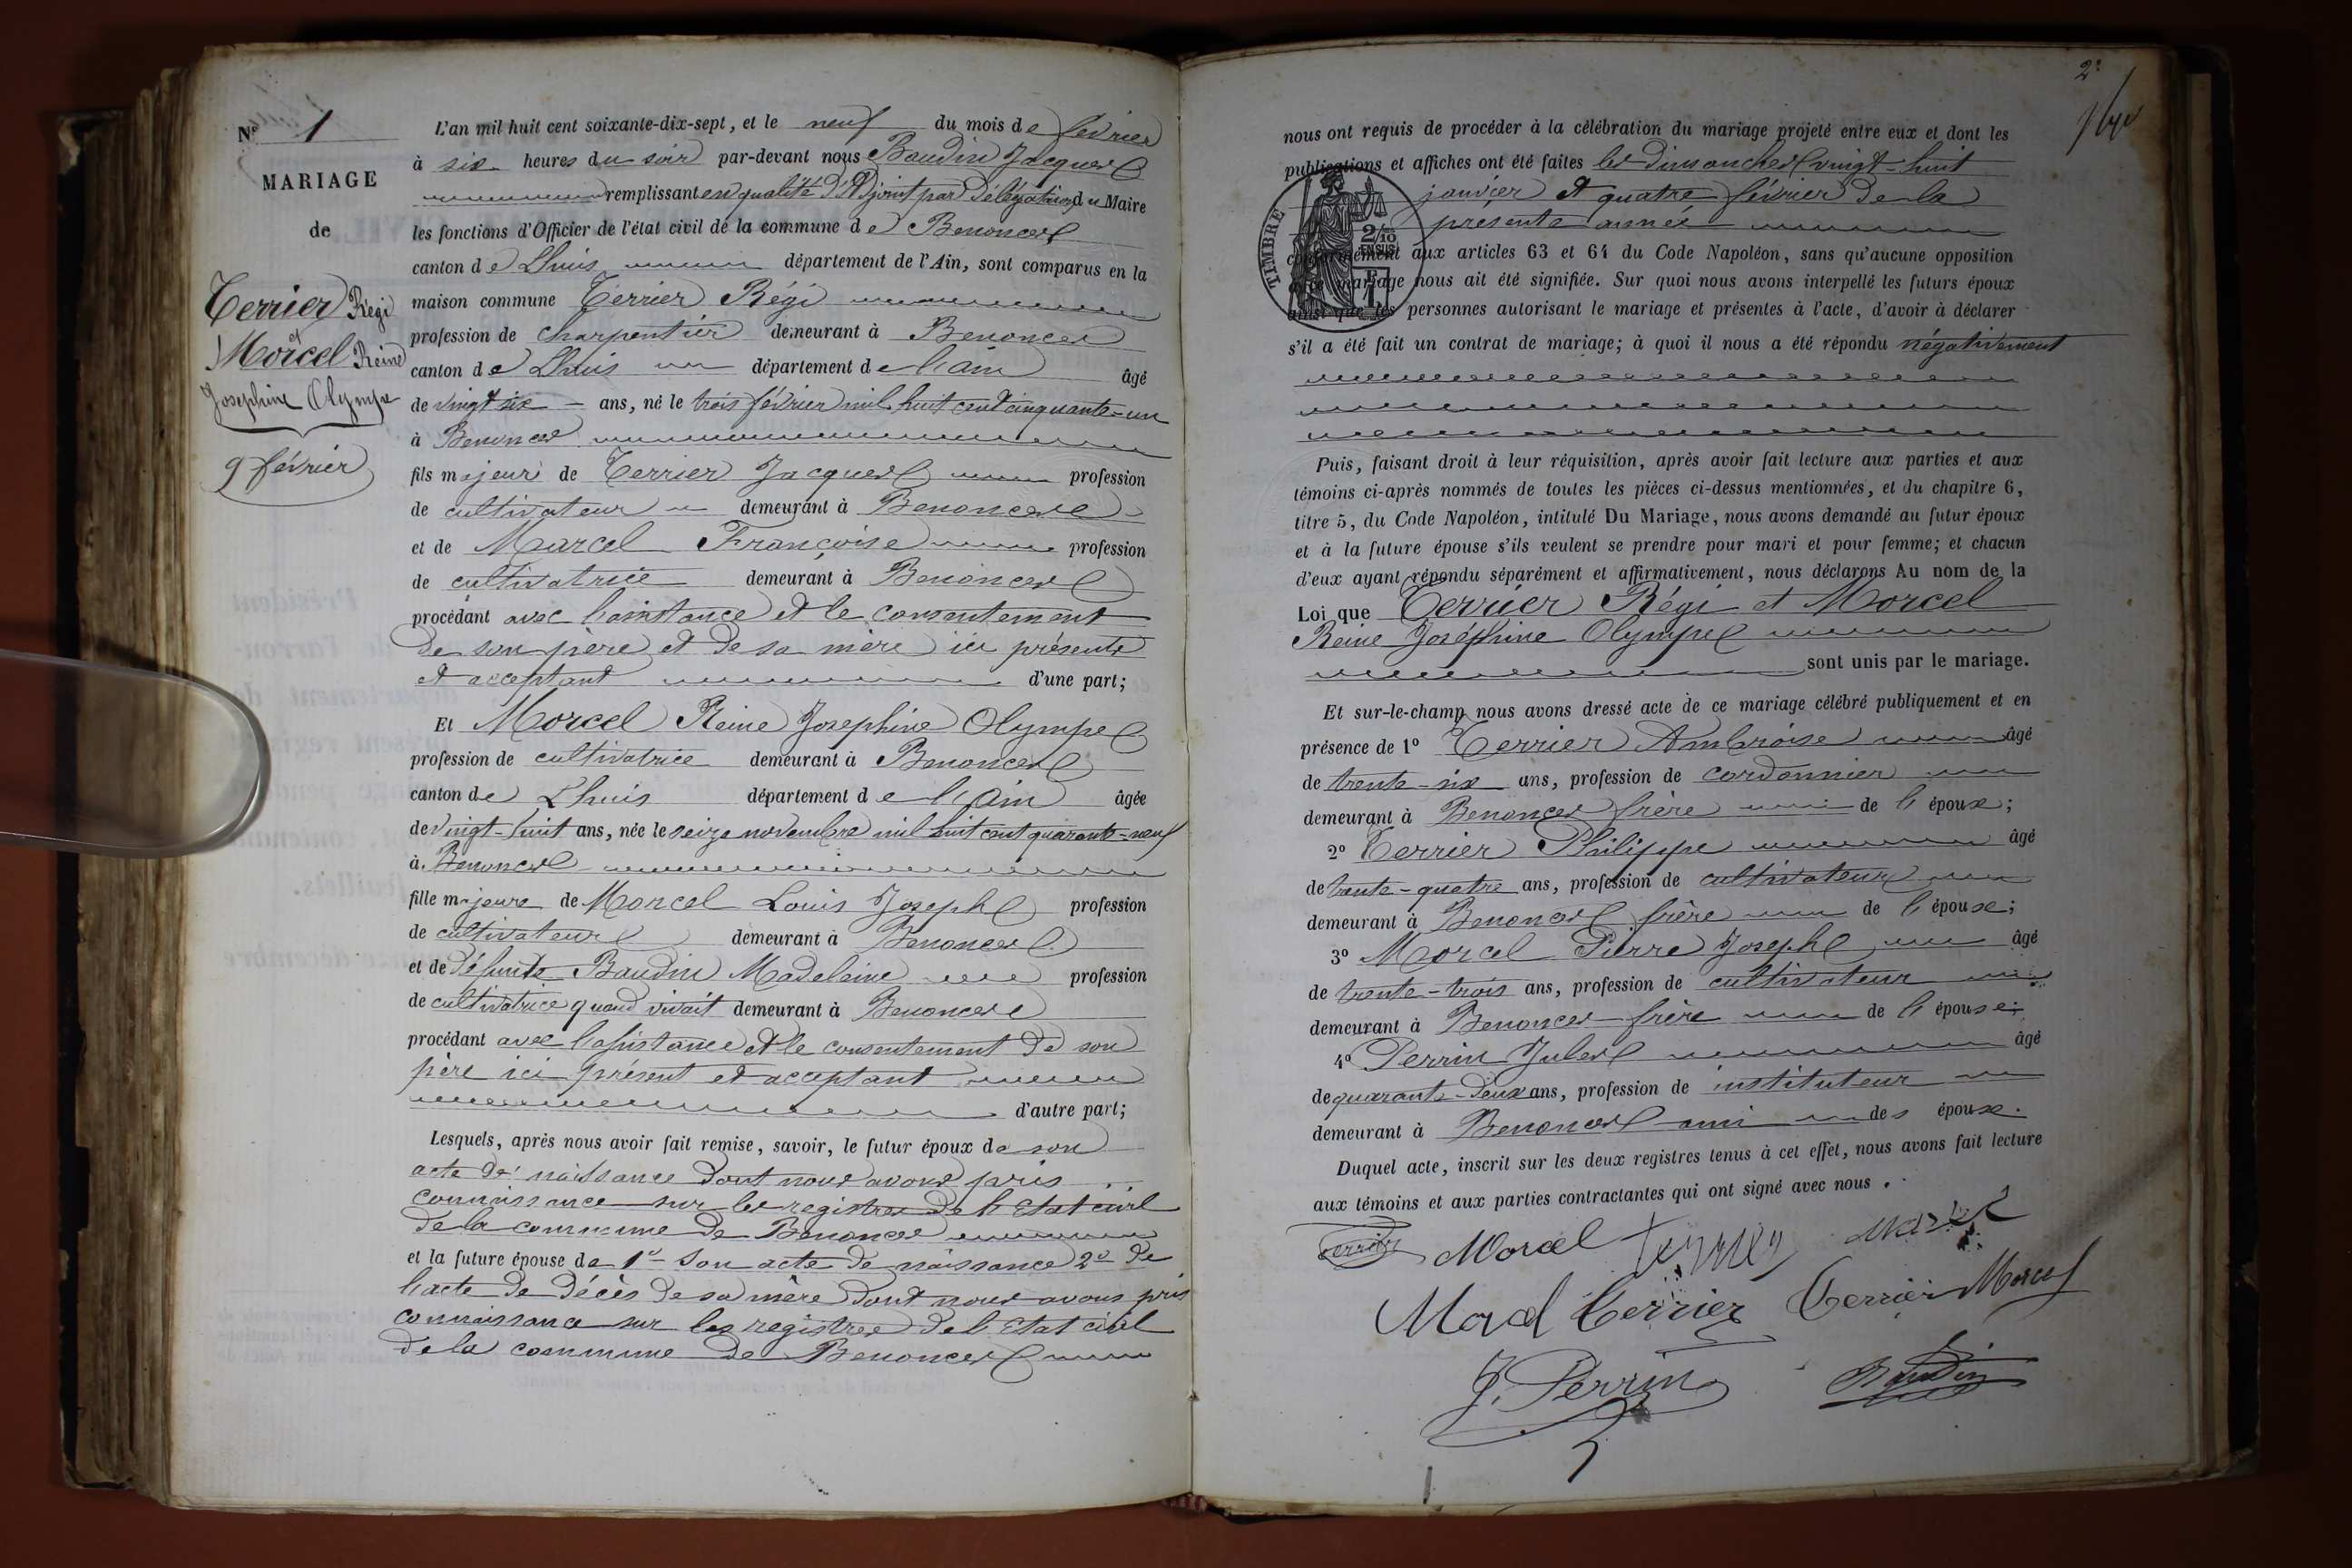 N° 1
MARIAGE
de
Terrier Régi
et
Morcel Reine
Josephine Olympe
9 février
L'an mil huit cent soixante-dix-sept, et le neuf du mois de février
à six heures du soir par-devant nous Baudin Jacques
remplissant en qualité d'Adjoint par délégation du Maire
les fonctions d'Officier de l'état civil de la commune de Benonces
canton de Lhuis département de l'Ain, sont comparus en la
maison commune Terrier Régi
profession de charpentier demeurant à Benonces
canton de Lhuis département de l'ain âgé
de vingt six ans, né le trois février mil huit cent cinquante-un
à Benonces
fils majeur de Terrier Jacques profession
de cultivateur demeurant à Benonces
et de Marcel Françoise profession
de cultivatrice demeurant à Benonces
procédant avec l'assistance et le consentement
de son père et de sa mère ici présents
et acceptant d'une part;
Et Morcel Reine Josephine Olympe
profession de cultivatrice demeurant à Benonces
canton de Lhuis département de l'Ain âgée
de vingt-huit ans, née le seize novembre mil huit cent quarante-neuf
à Benonces
fille majeure de Morcel Louis Joseph profession
de cultivateur demeurant à Benonces
et de défunte Baudin Madelaine profession
de cultivatrice quand vivait demeurant à Benonces
procédant avec l'assistance et le consentement de son
père ici présent et acceptant
d'autre part;
Lesquels, après nous avoir fait remise, savoir, le futur époux de son
acte de naissance dont nous avons pris
connaissance sur les registres de l'Etat civil
de la commune de Benonces
et la future épouse de 1° son acte de naissance 2° de
l'acte de décès de sa mère dont nous avons pris
connaissance sur les registres de l'Etat civil
de la commune de Benonces
2
nous ont requis de procéder à la célébration du mariage projeté entre eux et dont les
publications et affiches ont été faites les dimanches vingt-huit
janvier et quatre février de la
présente année
TIMBRE
2/10
EN SUS
conformément aux articles 63 et 64 du Code Napoléon, sans qu'aucune opposition
à ce mariage nous ait été signifiée. Sur quoi nous avons interpellé les futurs époux
ainsi que les personnes autorisant le mariage et présentes à l'acte, d'avoir à déclarer
s'il a été fait un contrat de mariage; à quoi il nous a été répondu négativement
Puis, faisant droit à leur réquisition, après avoir fait lecture aux parties et aux
témoins ci-après nommés de toutes les pièces ci-dessus mentionnées, et du chapitre 6,
titre 5, du Code Napoléon, intitulé Du Mariage, nous avons demandé au futur époux
et à la future épouse s'ils veulent se prendre pour mari et pour femme; et chacun
d'eux ayant répondu séparément et affirmativement, nous déclarons Au nom de la
Loi que Terrier Régi et Morcel
Reine Joséphine Olympe
sont unis par le mariage.
Et sur-le-champ nous avons dressé acte de ce mariage célébré publiquement et en
présence de 1° Terrier Ambroise âgé
de trente-six ans, profession de cordonnier
demeurant à Benonces frère de l'époux;
2° Terrier Philippe âgé
de trente-quatre ans, profession de cultivateur
demeurant à Benonces frère de l'époux;
3° Morcel Pierre Joseph âgé
de trente-trois ans, profession de cultivateur
demeurant à Benonces frère de l'épouse;
4° Perrin Jules âgé
de quarante-deux ans, profession de instituteur
demeurant à Benonces ami des époux.
Duquel acte, inscrit sur les deux registres tenus à cet effet, nous avons fait lecture
aux témoins et aux parties contractantes qui ont signé avec nous.
Terrier Morcel Terrier
Terrier Terrier Morcel
J. Perrin Baudin